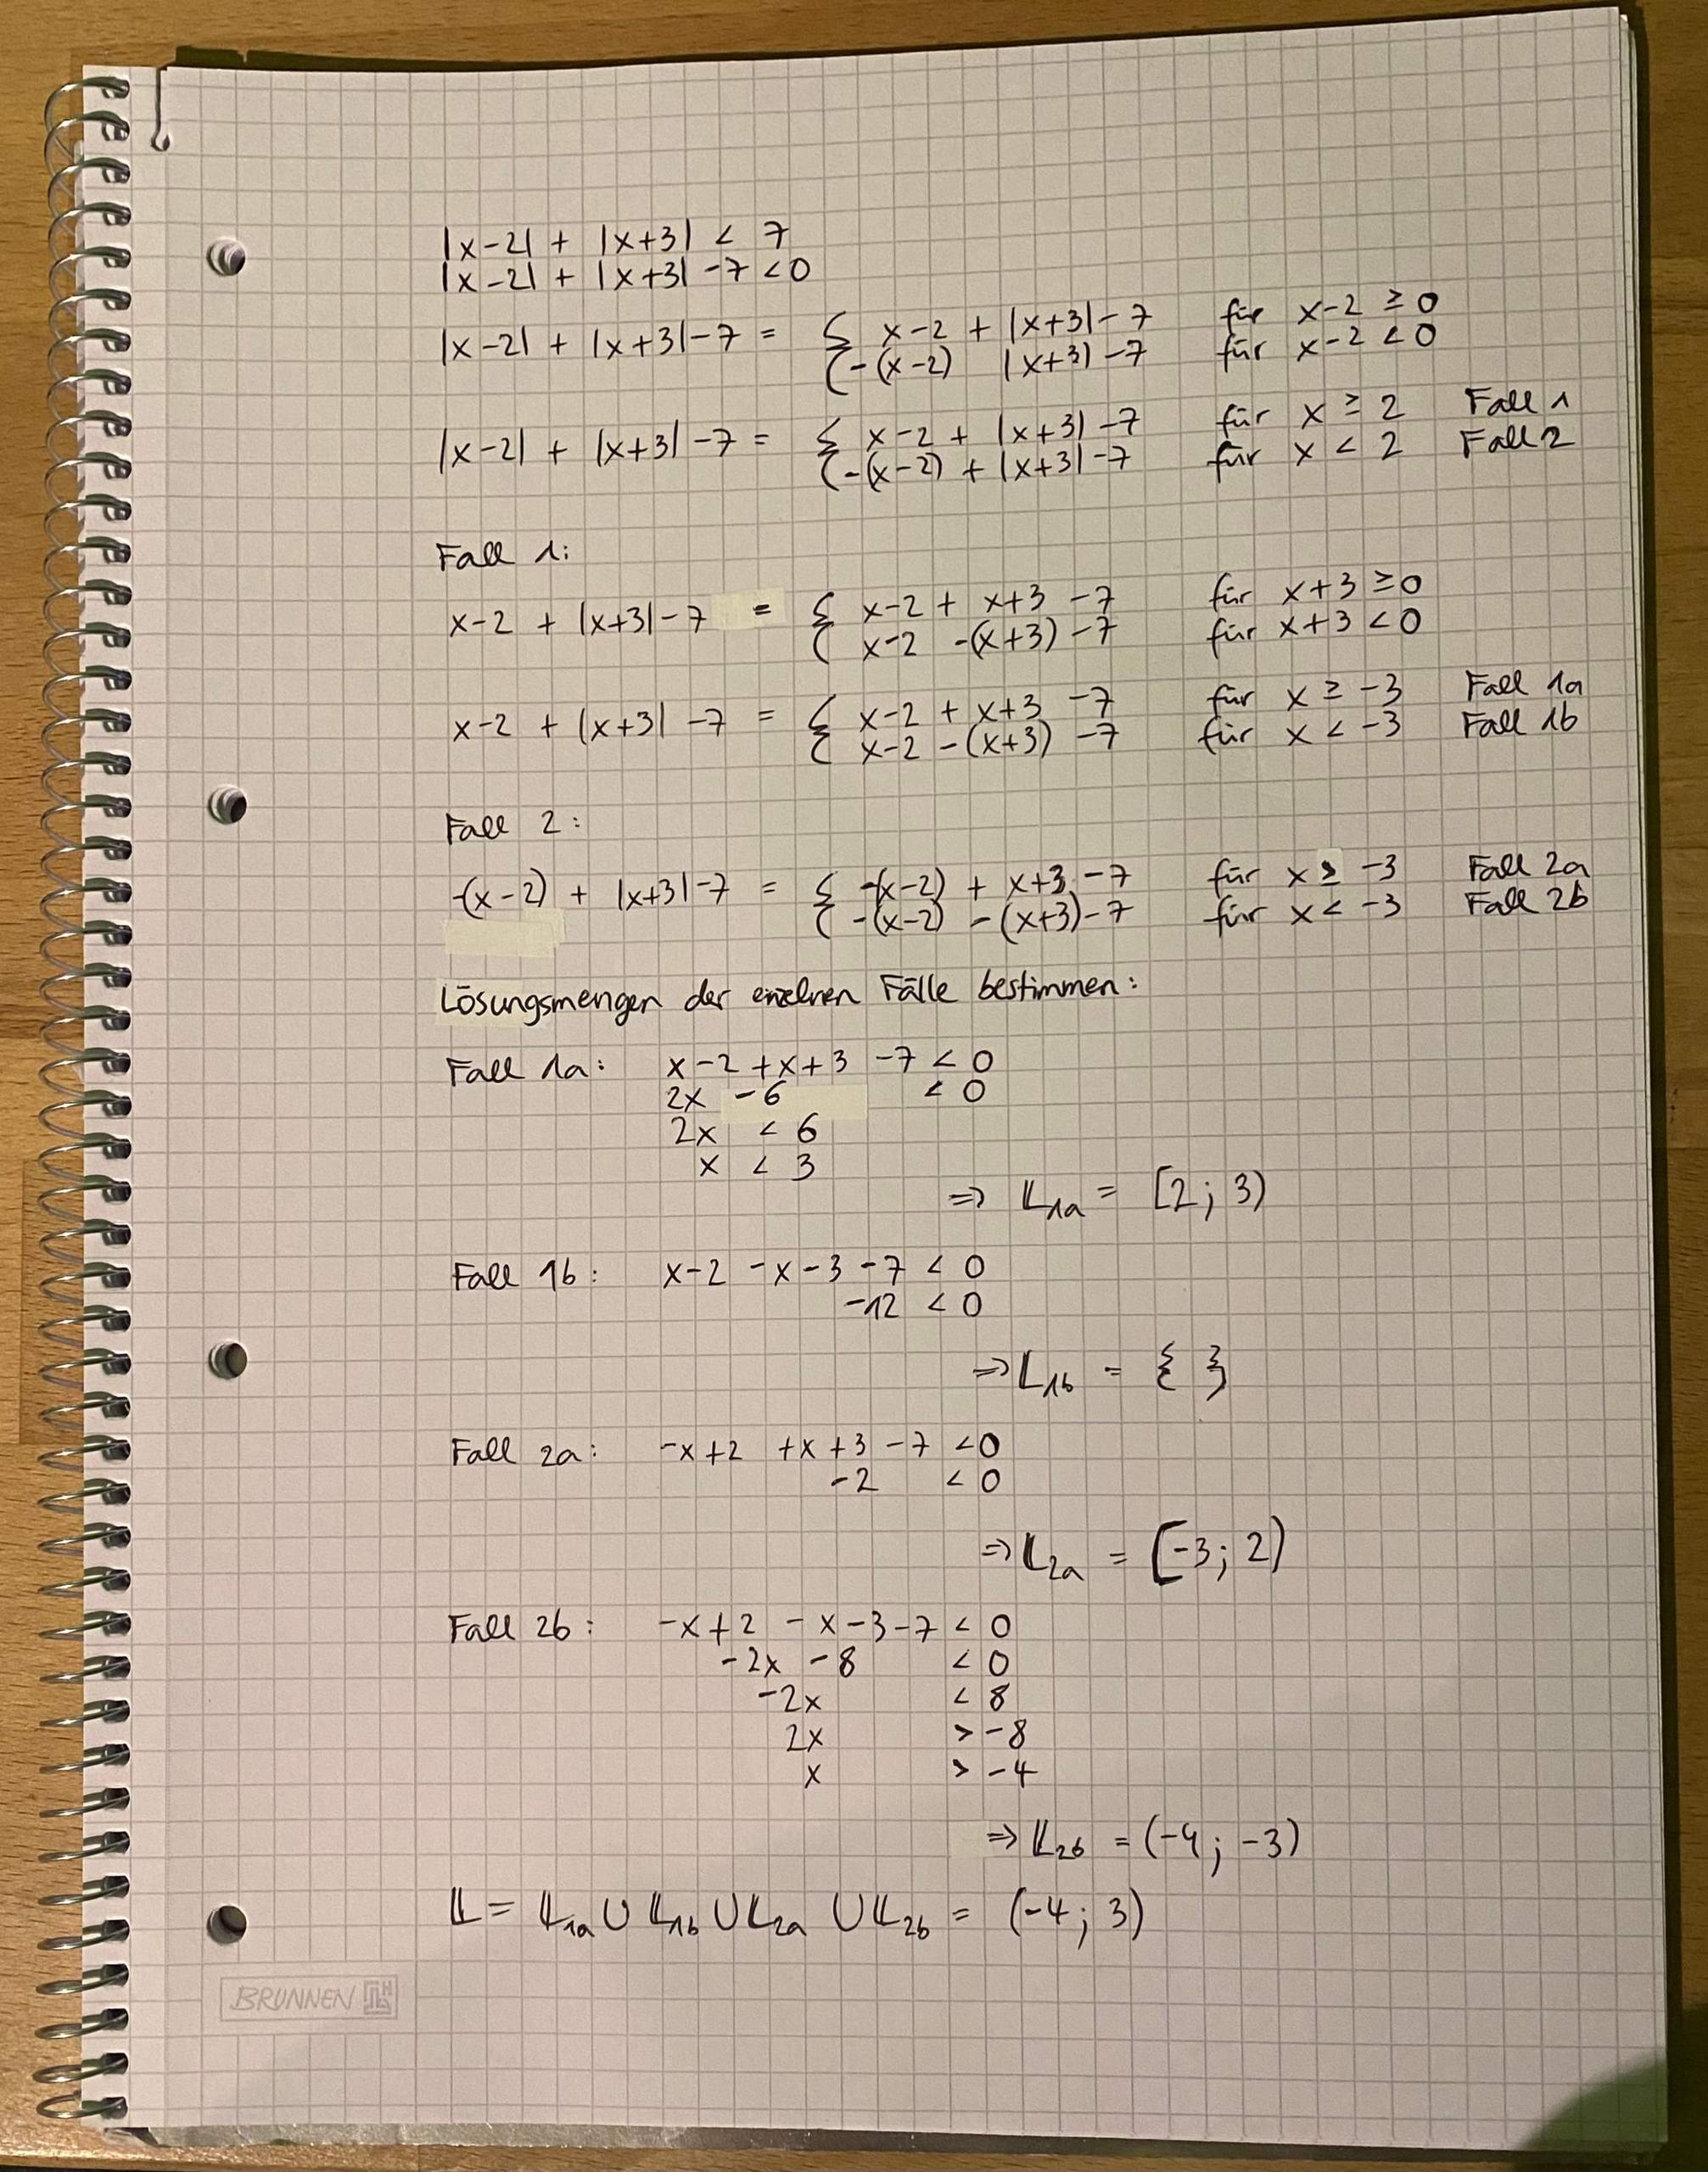 |x-2| + |x+3| < 7
|x-2| + |x+3| -7 <0
|x-2| + |x+3| -7 = { x-2 + |x+3| -7 für x-2 ≥ 0
-(x-2) |x+3| -7 für x-2 < 0
|x-2| + |x+3| -7 = { x-2 + |x+3| -7 für x ≥ 2 Fall 1
-(x-2) + |x+3| -7 für x < 2 Fall 2
Fall 1:
x-2 + |x+3| -7 = { x-2 + x+3 -7 für x+3 ≥0
x-2 -(x+3) -7 für x+3 <0
x-2 + |x+3| -7 = { x-2 + x+3 -7 für x ≥ -3 Fall 1a
x-2 -(x+3) -7 für x < -3 Fall 1b
Fall 2:
-(x-2) + |x+3| -7 = { -(x-2) + x+3 -7 für x ≥ -3 Fall 2a
-(x-2) - (x+3) -7 für x < -3 Fall 2b
Lösungsmengen der einzelnen Fälle bestimmen:
Fall 1a: x-2 +x+3 -7 < 0
2x -6 < 0
2x < 6
x < 3
=> 𝕃1a = [2; 3)
Fall 1b: x-2 -x-3-7 < 0
-12 < 0
=> 𝕃1b = { }
Fall 2a: -x+2 +x+3-7 <0
-2 < 0
=> 𝕃2a = [-3; 2)
Fall 2b: -x+2 -x-3-7 < 0
-2x -8 < 0
-2x < 8
2x > -8
x > -4
=> 𝕃2b = (-4; -3)
𝕃 = 𝕃1a ∪ 𝕃1b ∪ 𝕃2a ∪ 𝕃2b = (-4; 3)
BRUNNEN